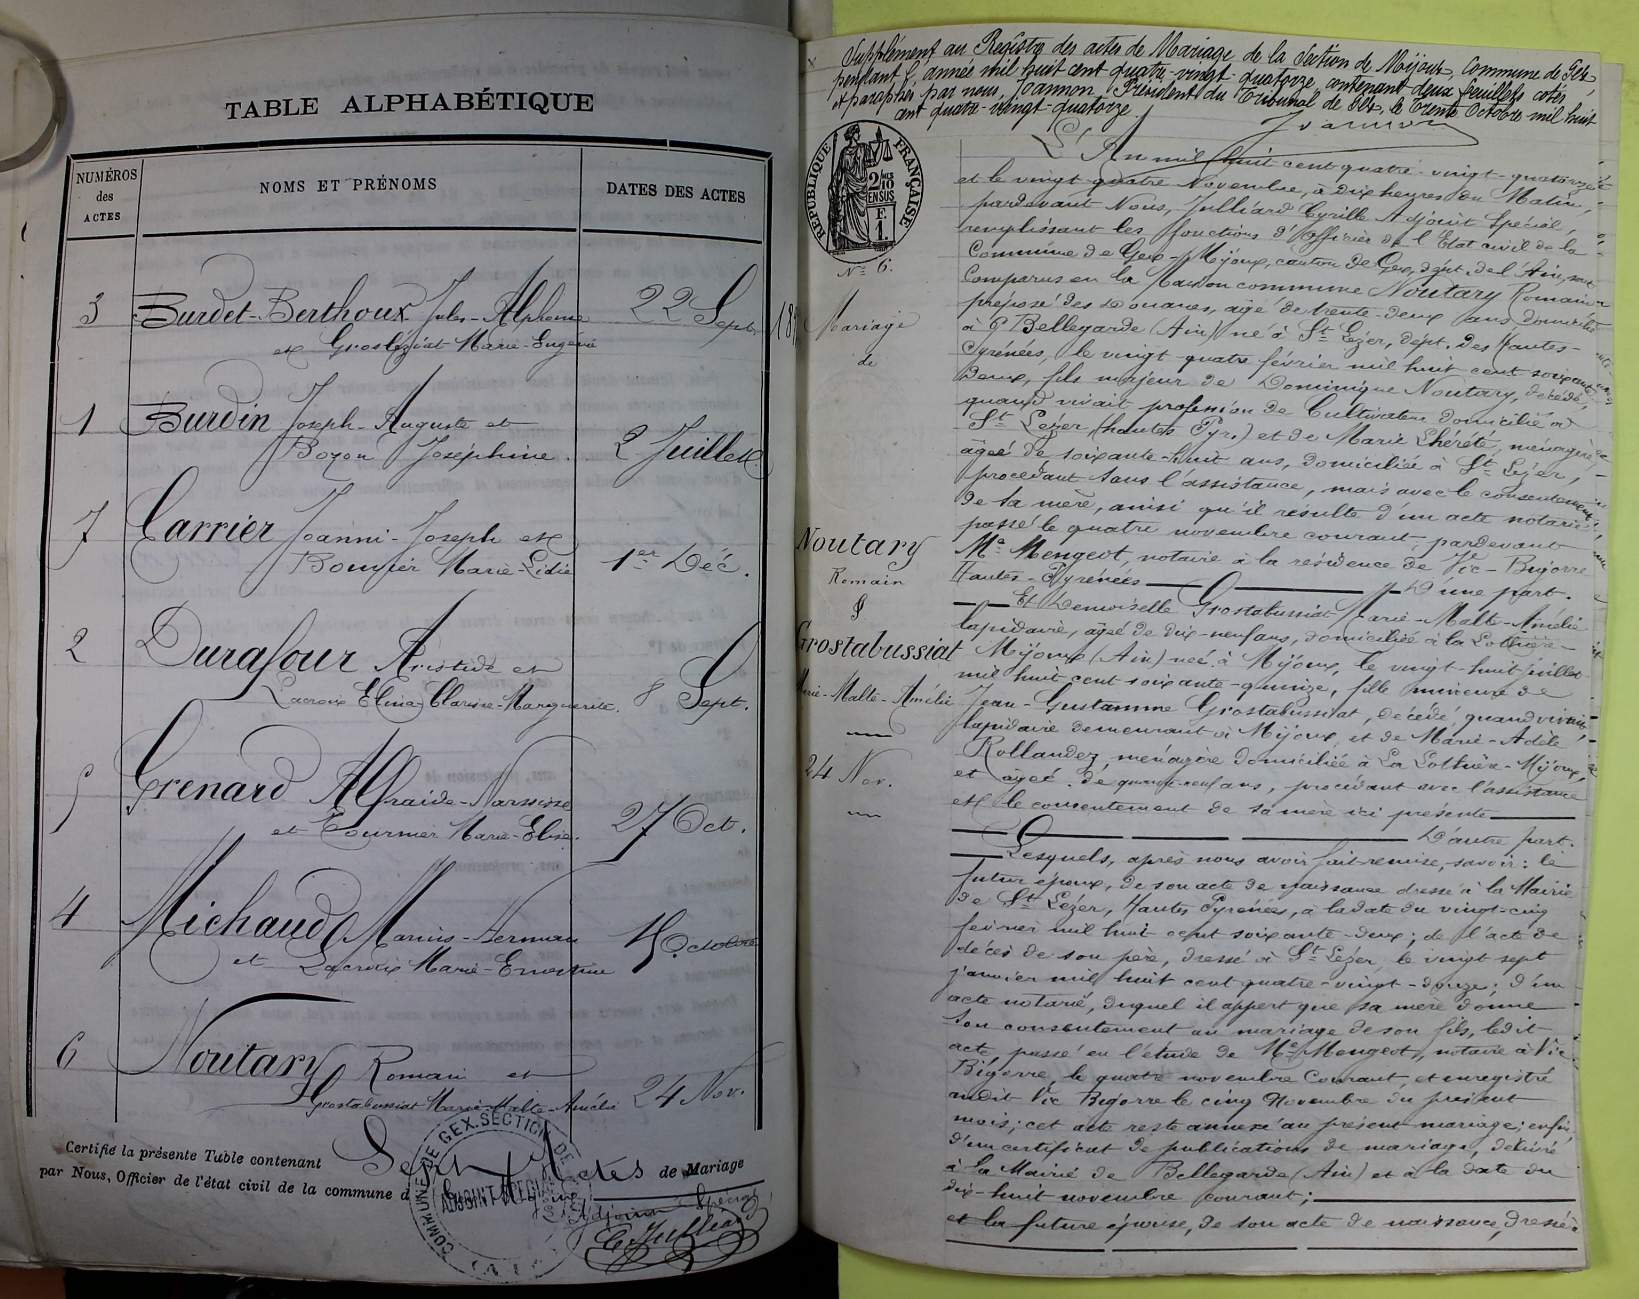 TABLE ALPHABÉTIQUE
NUMÉROS des ACTES
NOMS ET PRÉNOMS
DATES DES ACTES
3 Burdet-Berthoux Jules-Alphonse 22 Sept.
et Grosléziat Marie-Eugénie
1 Burdin Joseph-Auguste et
Bozon Joséphine. 2 Juillet.
7 Carrier Joanni-Joseph et
Bouvier Marie-Lidie 1er Déc.
2 Durafour Aristide et
Lacroix Elina Clarisse-Marguerite. 8 Sept.
5 Grenard Alfraide-Narcisse
et Tournier Marie-Elise. 27 Oct.
4 Michaud Marius-Herman
et Lacroix Marie-Ernestine Octobre
6 Noutary Romain et
Grostabussiat Marie-Malte-Amélie 24 Nov.
Certifié la présente Table contenant Sept Actes de Mariage
par Nous, Officier de l'état civil de la commune d
L'Adjoint Spécial,
C. Julliard
COMMUNE DE GEX. SECTION DE
ADJOINT SPÉCIAL
(AIN)
Supplément au Registre des actes de Mariage de la Section de Mijoux, Commune de Gex,
pendant l'année mil huit cent quatre-vingt-quatorze, contenant deux feuillets cotés
et paraphés par nous, Joannon, Président du Tribunal de Gex, le trente Octobre mil huit
cent quatre-vingt-quatorze.
Joannon
RÉPUBLIQUE FRANÇAISE
2/10 EN SUS
F. 1.
No 6.
Mariage
de
Noutary
Romain
&
Grostabussiat
Marie-Malte-Amélie
24 Nov.
L'An mil huit cent quatre-vingt-quatorze
et le vingt quatre Novembre, à dix heures du Matin,
pardevant Nous, Julliard Cyrille Adjoint Spécial,
remplissant les fonctions d'Officier de l'Etat civil de la
Commune de Gex-Mijoux, canton de Gex, dépt. de l'Ain, sont
Comparus en la Maison commune Noutary Romain
préposé des douanes, âgé de trente-deux ans, domicilié
à Bellegarde (Ain) né à St Lézer, dépt. des Hautes-
Pyrénées, le vingt-quatre février mil huit cent soixante
deux, fils majeur de Dominique Noutary, décédé,
quand vivait profession de Cultivateur domicilié à
St Lézer, (hautes Pyr.) et de Marie Lhérété, ménagère,
âgée de soixante-huit ans, domiciliée à St Lézer,
procédant sans l'assistance, mais avec le consentement
de sa mère, ainsi qu'il résulte d'un acte notarié
passé le quatre novembre courant, pardevant
Me Mengeot, notaire à la résidence de Vic-Bigorre
Hautes-Pyrénées D'une part.
Et Demoiselle Grostabussiat Marie-Malte-Amélie
lapidaire, âgée de dix-neuf ans, domiciliée à la Lothière-
Mijoux (Ain) née à Mijoux, le vingt-huit juillet
mil huit cent soixante-quinze, fille mineure de
Jean-Gustamme Grostabussiat, décédé, quand vivait
lapidaire demeurant à Mijoux et de Marie-Adèle
Rollandez, ménagère domiciliée à La Lothière-Mijoux,
et âgée de quarante-neuf ans, procédant avec l'assistance
et le consentement de sa mère ici présente
D'autre part.
Lesquels, après nous avoir fait remise, savoir: le
futur époux, de son acte de naissance dressé à la Mairie
de St Lézer, Hautes Pyrénées, à la date du vingt-cinq
février mil huit cent soixante-deux; de l'acte de
décès de son père, dressé à St Lézer, le vingt sept
janvier mil huit cent quatre-vingt-douze; d'un
acte notarié, duquel il appert que sa mère donne
son consentement au mariage de son fils, ledit
acte, passé en l'étude de Me Mengeot, notaire à Vic
Bigorre, le quatre novembre Courant, et enregistré
audit Vic Bigorre le cinq Novembre du présent
mois; cet acte reste annexé au présent mariage; enfin,
d'un certificat de publications de mariage, délivré
à la Mairie de Bellegarde (Ain) et à la date du
dix-huit novembre courant;
et la future épouse, de son acte de naissance, dressé